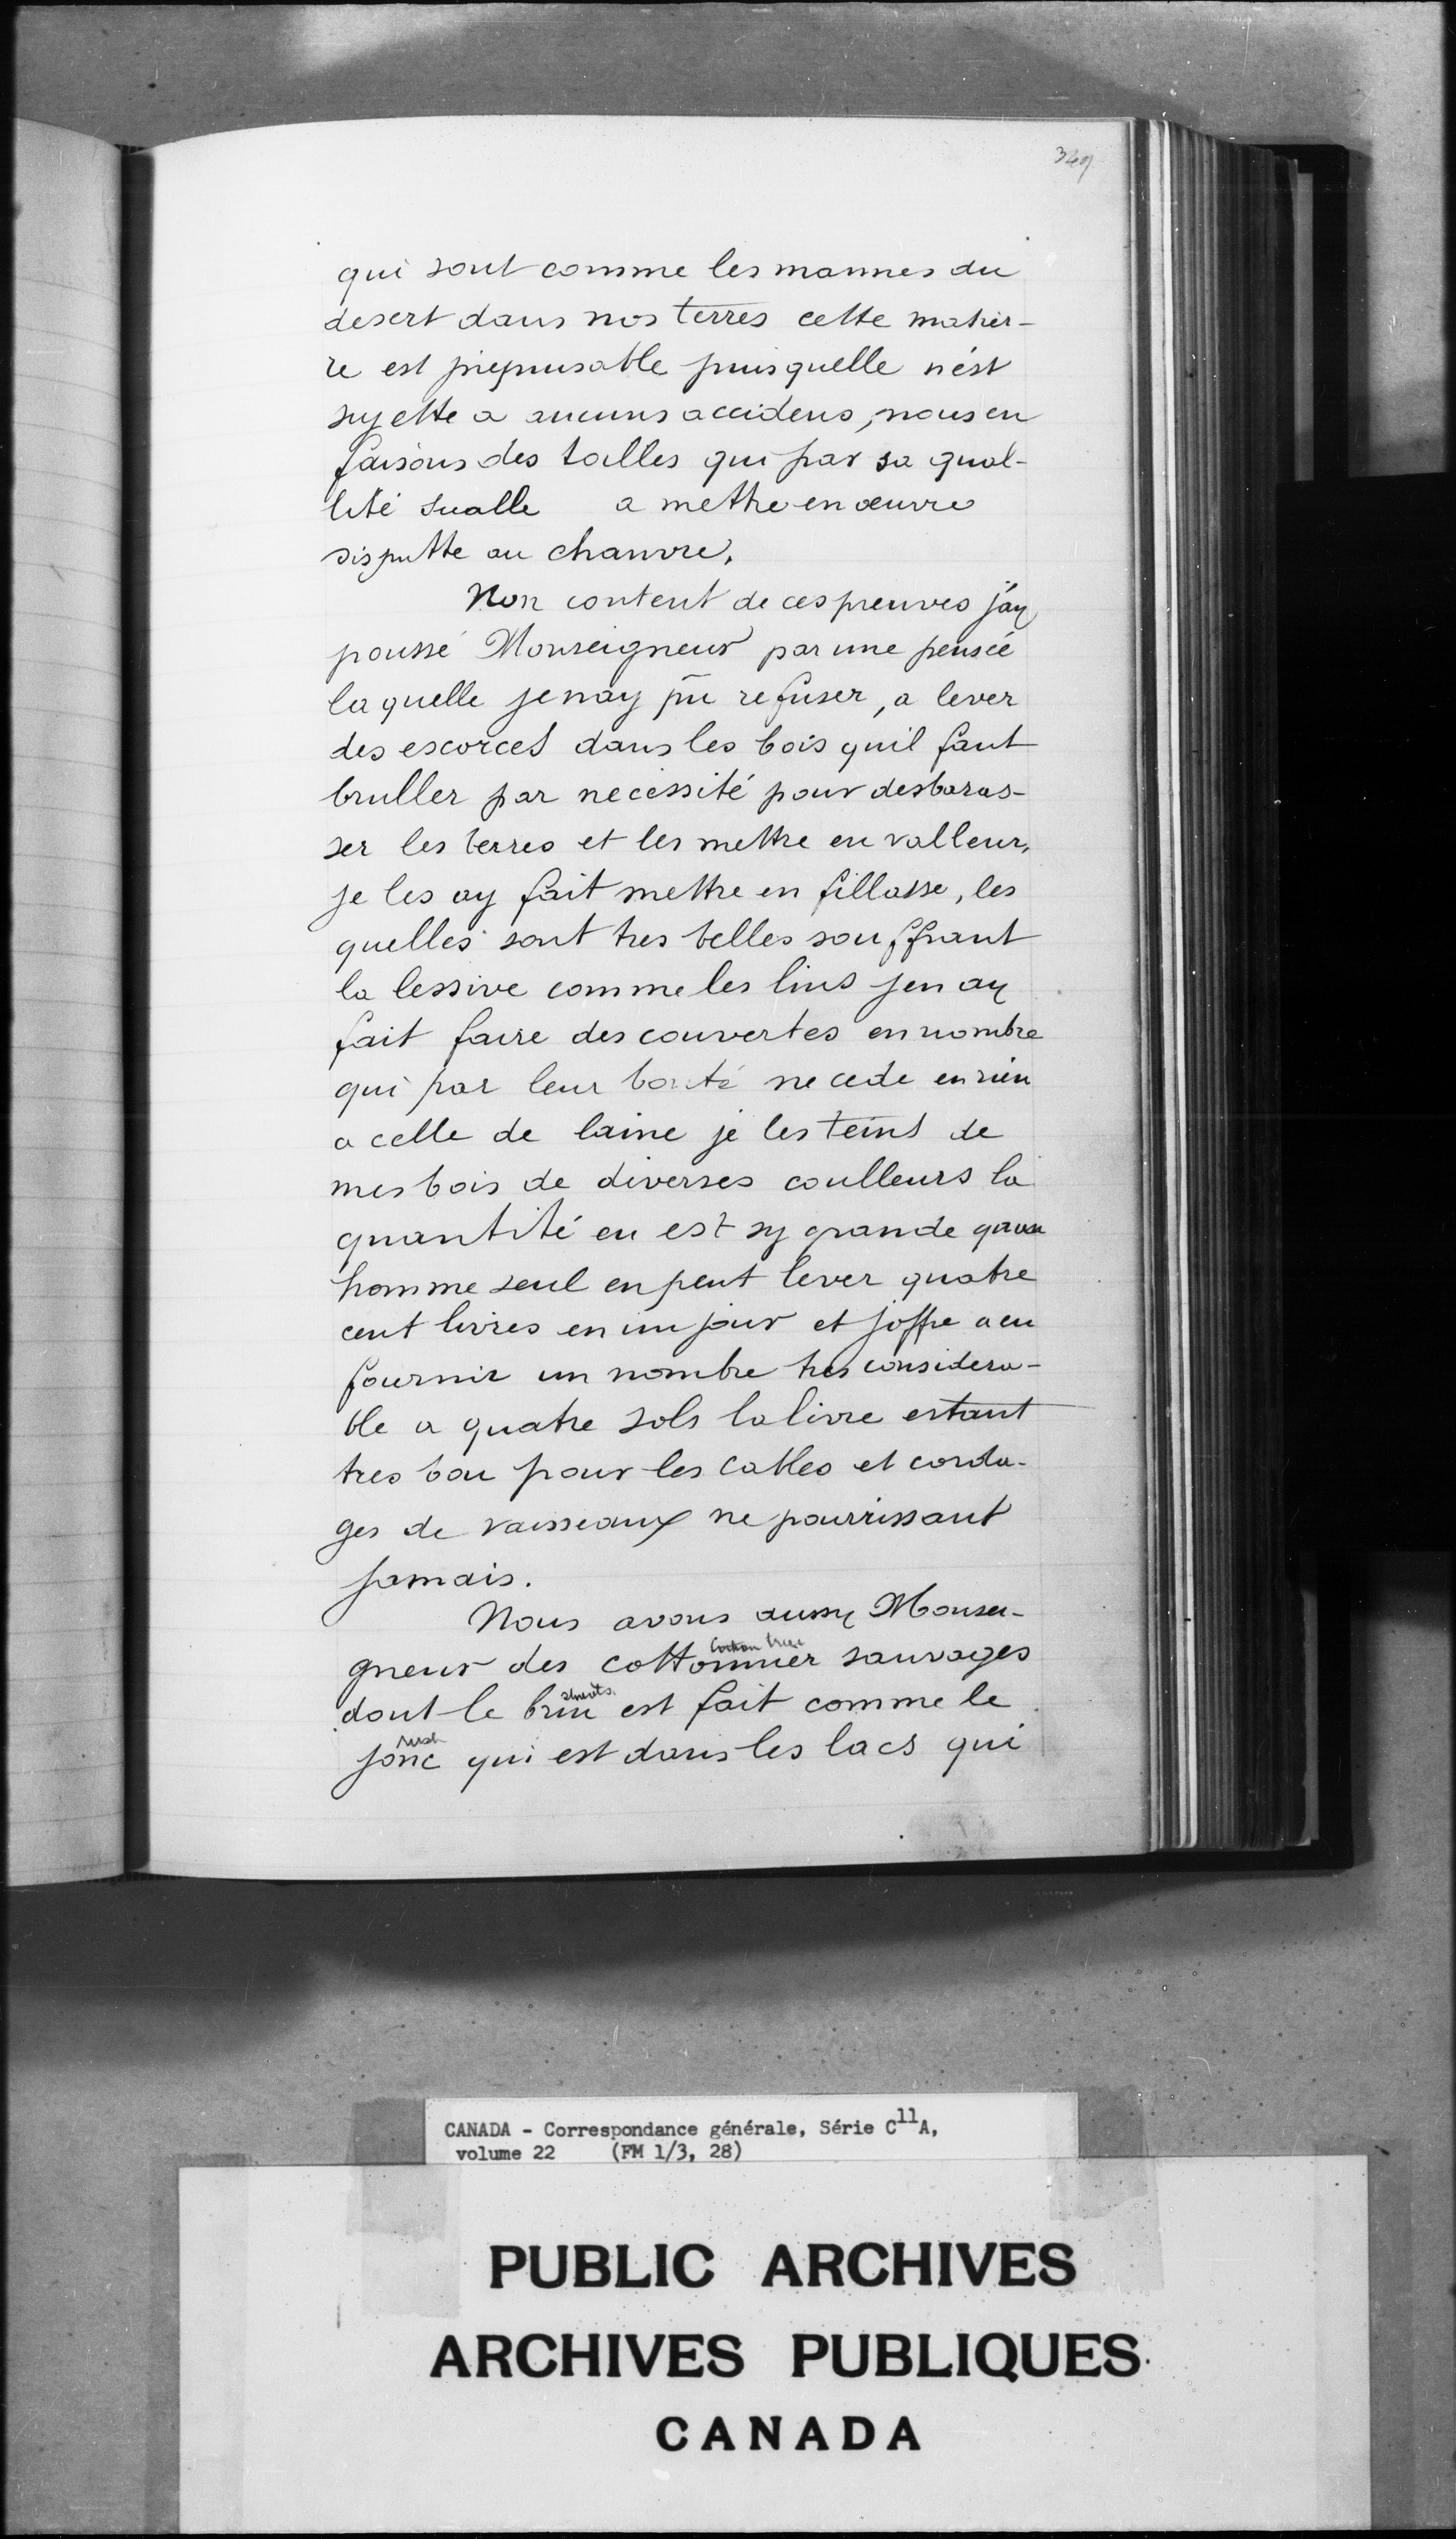 349
qui sont comme les mannes du
desert dans nos terres cette matier-
re est puisquelle n'est
sujette a aucuns accidens, nous en
faisons des toilles qui par sa qual-
lité a mettre en œuvre
disputte au chanvre.
Non content de ces preuves j'ay
poussé Monseigneur par une pensée
laquelle je nay pû refuser, a lever
des escorces dans les bois quil faut
bruller par necessité pour desbaras-
ser les terres et les mettre en valleur,
je les ay fait mettre en fillasse, les
quelles sont tres belles souffrant
la lessive comme les lins jen ay
fait faire des couvertes en nombre
qui par leur bonté ne cede en rien
a celle de laine je les teins de
mes bois de diverses coulleurs la
quantité en est sy grande quun
homme seul en peut lever quatre
cent livres en un jour et joffre a en
fournir un nombre tres considera-
ble a quatre sols la livre estant
tres bon pour les cables et corda-
ges de vaisseaux ne pourrissant
jamais.
Nous avons aussy Monsei-
cotton tree
gneur des cottonnier sauvages
shoots
dont le brin est fait comme le
rush
jonc qui est dans les lacs qui
CANADA - Correspondance générale, Série C11A,
volume 22 (FM 1/3, 28)
PUBLIC ARCHIVES
ARCHIVES PUBLIQUES
CANADA